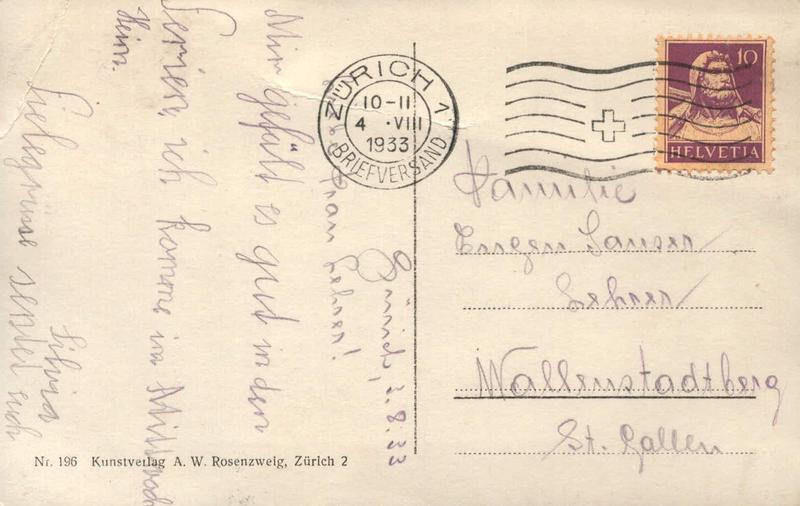 Zürich, 3.8.33
Frau Lehrer!
Mir gefält es gut in den
Ferien, ich komme im Mittwoch
Heim.
Liebegrüsse sentet euch
Silvia
ZÜRICH 1
10-11
4 · VIII
1933
BRIEFVERSAND
10
HELVETIA
Familie
Eugen Sauser
Lehrer
Wallenstadtberg
St. Gallen
Nr. 196 Kunstverlag A. W. Rosenzweig, Zürich 2